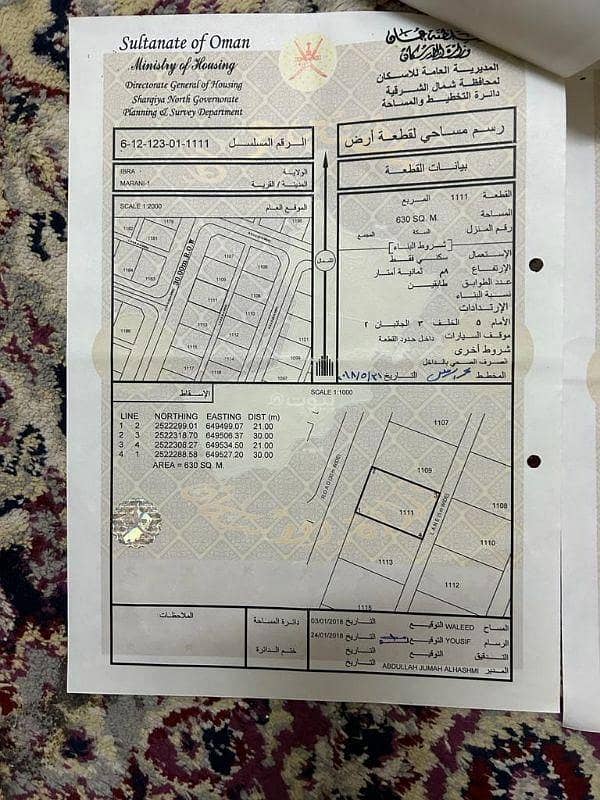 Sultanate of Oman
Ministry of Housing
Directorate General of Housing
Sharqiya North Governorate
Planning & Survey Department
سلطنة عمان
وزارة الإسكان
المديرية العامة للاسكان
لمحافظة شمال الشرقية
دائرة التخطيط والمساحة
6-12-123-01-1111 الرقم المسلسل
رسم مساحي لقطعة أرض
IBRA الولاية
MARANI-1 المدينة / القرية
بيانات القطعة
SCALE 1:2000 الموقع العام
القطعة 1111 المربع
المساحة 630 SQ. M
رقم المنزل السكة المجمع
[شروط البناء]
الإستعمال سكني فقط
الإرتفاع ٨م ثمانية أمتار
عدد الطوابق طابقين
نسبة البناء
الإرتدادات
الأمام ٥ الخلف ٣ الجانبان ٢
موقف السيارات داخل حدود القطعة
شروط أخرى
الصرف الصحي بالداخل
المخطط التاريخ ٢٠١٨/٥/٣١
30.00m R.O.W
1179
1181
1183
1182
1184
1107
1109
1111
1113
1110
1112
الشمال
الإسقاط
SCALE 1:1000
LINE NORTHING EASTING DIST (m)
1 2 2522299.01 649499.07 21.00
2 3 2522318.70 649506.37 30.00
3 4 2522308.27 649534.50 21.00
4 1 2522288.58 649527.20 30.00
AREA = 630 SQ. M.
1107
1109
1108
1111
1110
1113
1112
1115
ROAD (30m WIDE)
LANE (5m WIDE)
الملاحظات
دائرة المساحة
ختم الدائرة
المساح WALEED التوقيع التاريخ 03/01/2018
الرسام YOUSIF التوقيع التاريخ 24/01/2018
التدقيق التوقيع التاريخ
المدير ABDULLAH JUMAH ALHASHMI التاريخ